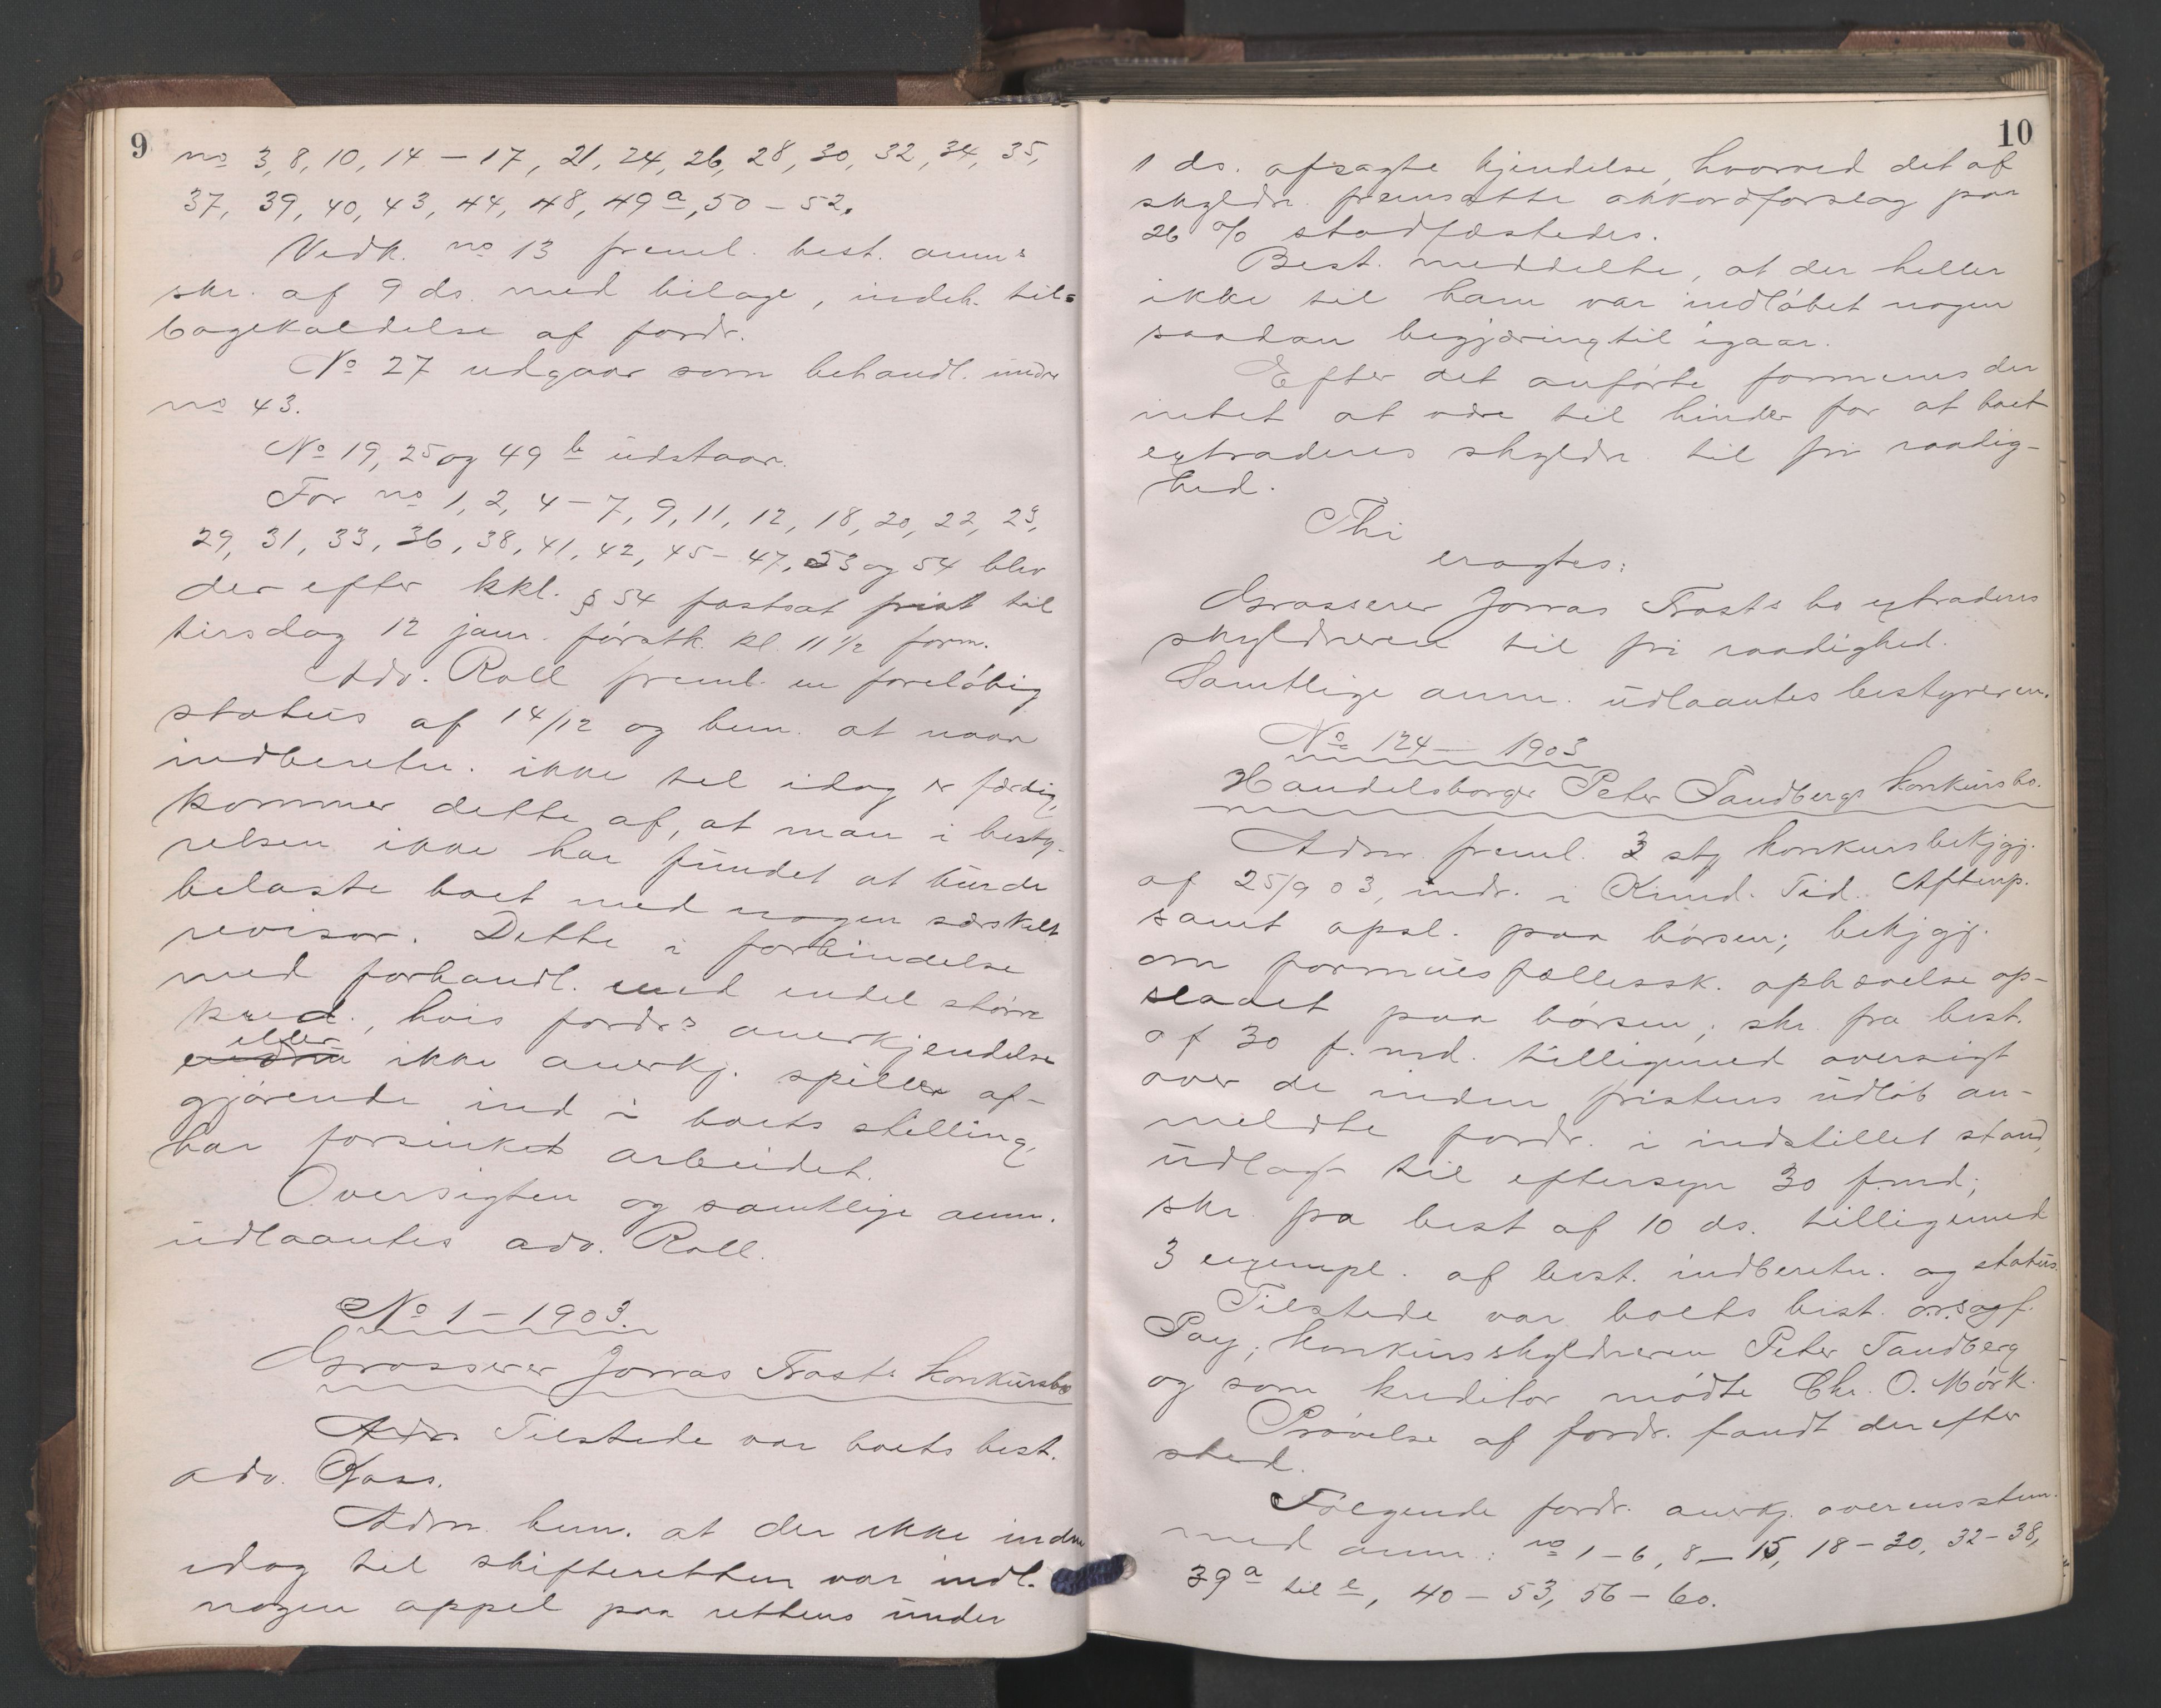 9
no 3, 8, 10, 14 – 17, 21, 24, 26, 28, 30, 32, 34, 35,
37, 39, 40, 43, 44, 48, 49 a, 50 – 52.
Vedk. no 13 freml. best. anm=
skr. af 9 ds. med bilage, indeh. til=
bagekaldelse af fordr.
No 27 udgaar som behandl. under
no 43.
No 19, 25 og 49 b udstaar.
For no 1, 2, 4 – 7, 9, 11, 12, 18, 20, 22, 23,
29, 31, 33, 36, 38, 41, 42, 45 – 47, 53 og 54 blev
der efter kkl. § 54 fastsat frist til
tirsdag 12 janr. förstk. kl 11 1/2 form.
Adv. Roll freml. en foreløbig
status af 14/12 og bem. at naar
indberetn. ikke til idag er færdig,
kommer dette af, at man i besty-
relsen ikke har fundet at burde
belaste boet med nogen særskilt
revisor. Dette i forbindelse
med forhandl. med endel større
kred., hvis fordr.s anerkjendelse
eller
ikke anerkj. spiller af-
gjørende ind i boets stilling,
har forsinket arbeidet.
Oversigten og samtlige anm.
udlaantes adv. Roll.
No 1 – 1903.
Grosserer Jonas Trosts konkursbo
Adm Tilstede var boets best.
adv. Kass.
Adm. bem. at der ikke inden
idag til skifteretten var indl.
nogen appel paa rettens under
10
11 ds. afsagte kjendelse, hvorved det af
skyldn. fremsatte akkordforslag paa
26 % stadfæstedes.
Best. meddelte, at der heller
ikke til ham var indløbet nogen
saadan begjæring til igaar.
Efter det anførte formenes der
intet at være til hinder for at boet
extraderes skyldn. til fri raadig-
hed.
Thi
eragtes:
Grosserer Jonas Trosts bo extraderes
skyldneren til fri raadighed.
Samtlige anm. udlaantes bestyreren.
No 124 – 1903
Handelsborger Peter Tandbergs konkursbo.
Adm. freml. 3 stg konkursbekjgj.
af 25/9 03, indr. i Kund. Tid. Aftenp.
samt opsl. paa børsen; bekjgj.
om formuesfællessk. ophævelse op-
slaaet paa børsen; skr. fra best.
af 30 f. md. tilligemed oversigt
over de inden fristens udløb an-
meldte fordr. i indstillet stand,
udlagt til eftersyn 30 f.md;
skr. fra best af 10 ds. tilligemed
3 exempl. af best. indberetn. og status.
Tilstede var boets best. o.r.sagf.
Pay; konkursskyldneren Peter Tandberg
og som kreditor mødte Chr. O. Mørk.
Prøvelse af fordr. fandt derefter
sted.
Følgende fordr. anerkj. overensstem.
med anm.: no 1 – 6, 8 – 15, 18 – 30, 32 – 38,
39 a til e, 40 – 53, 56 – 60.